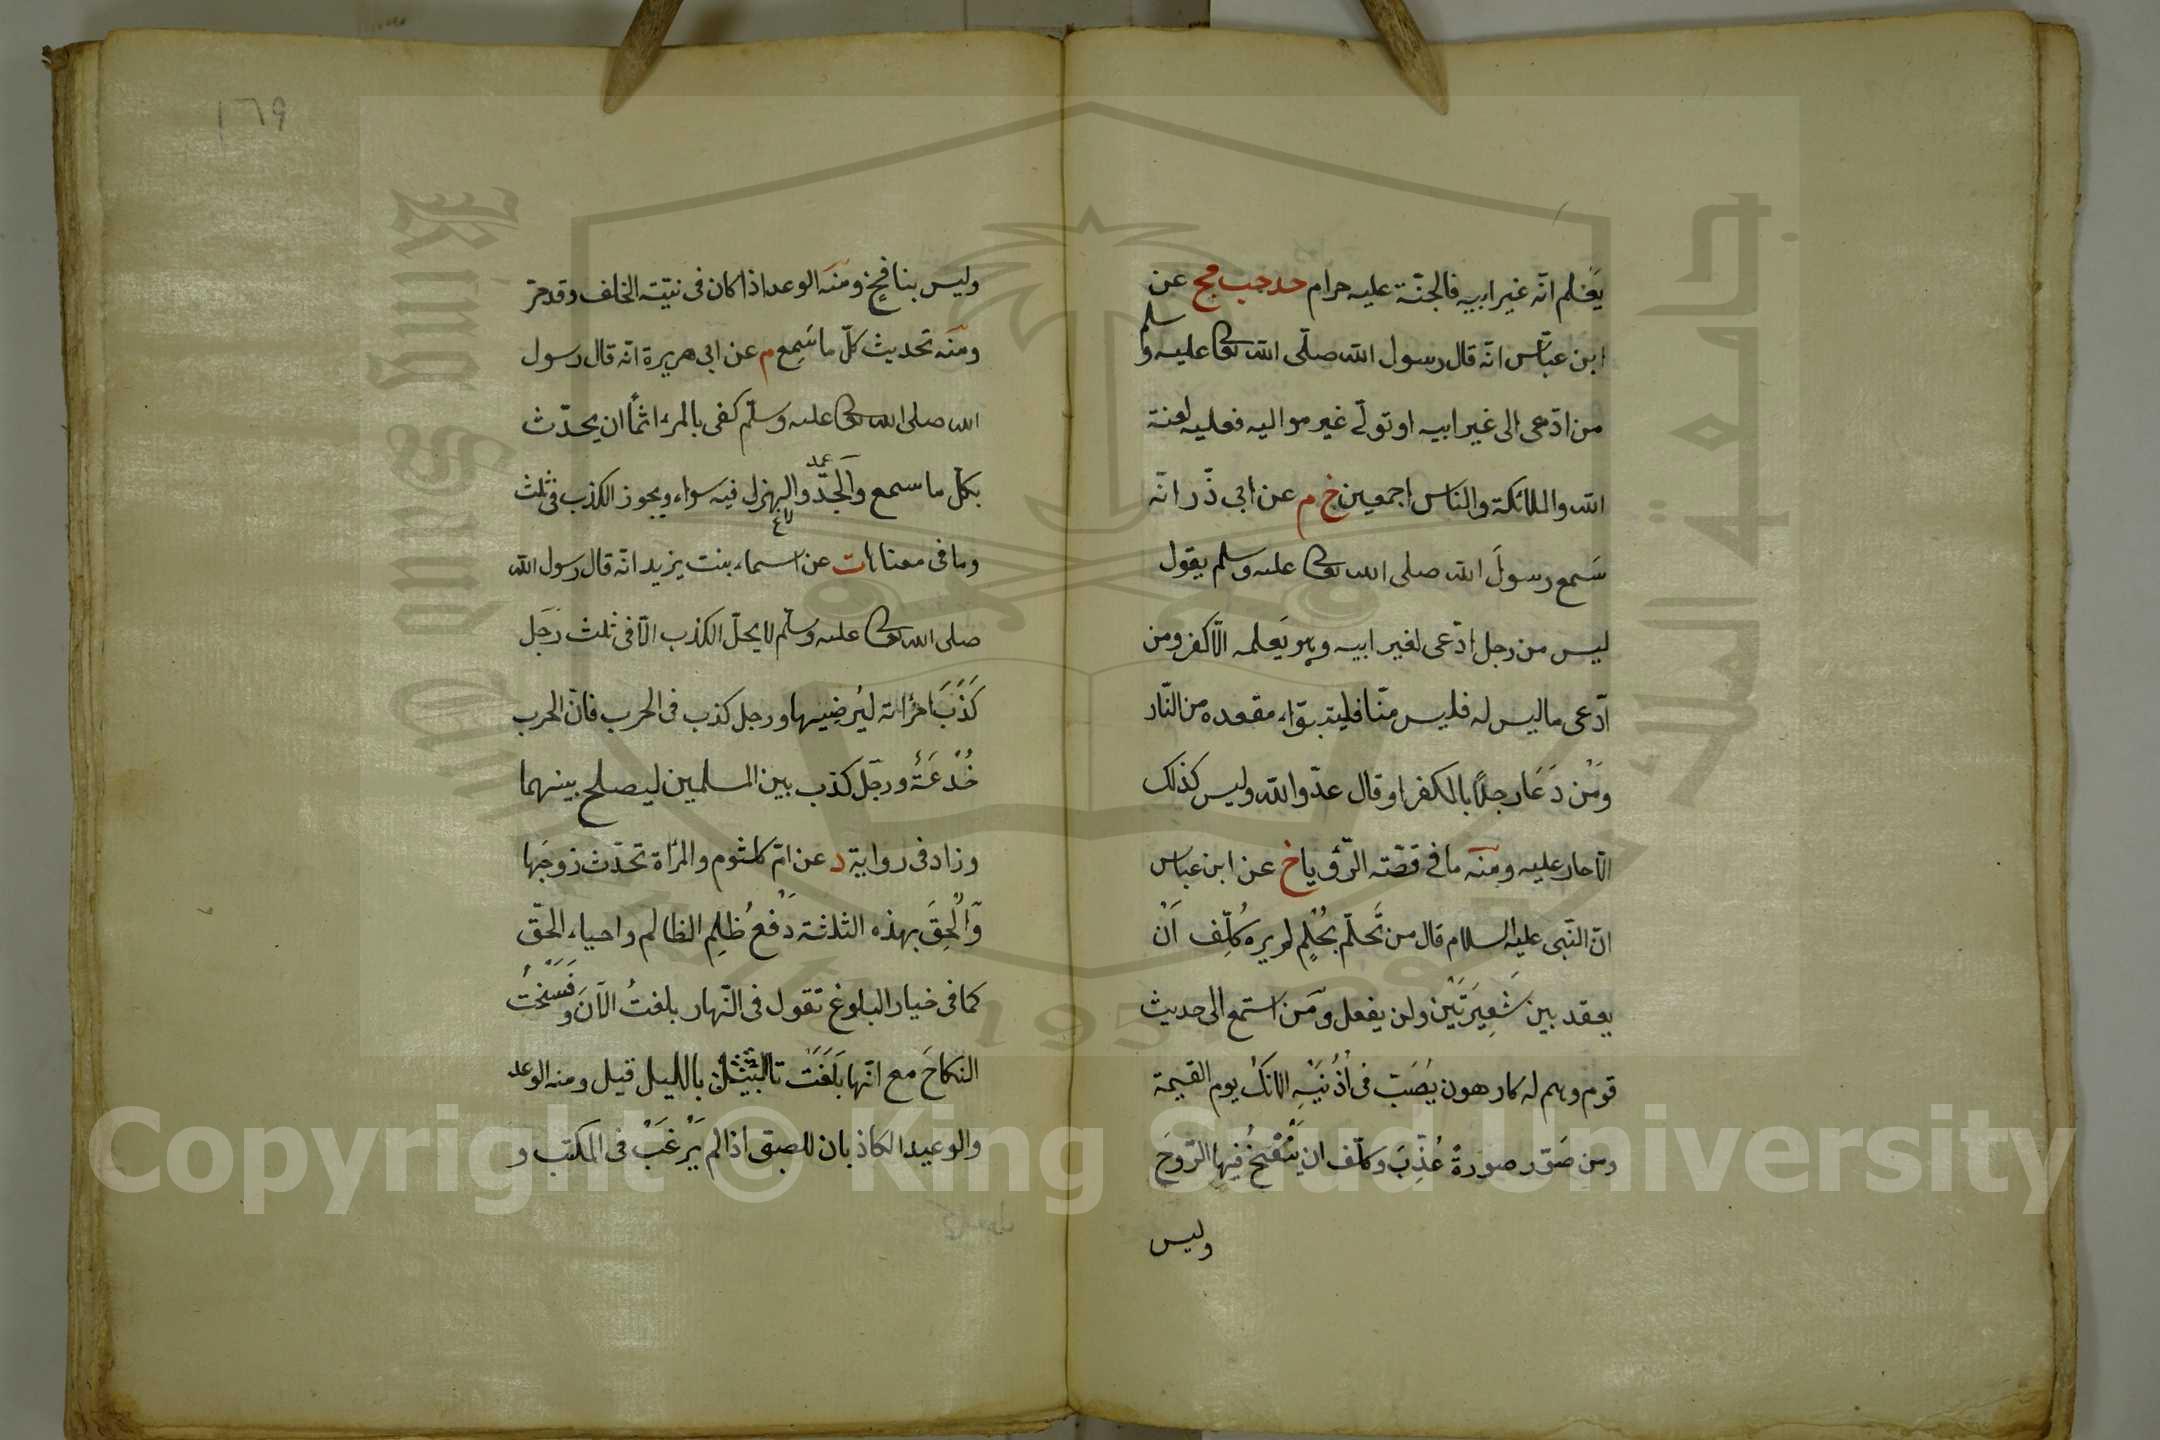 يَعْلم انّه غير ابيه فالجنّة عليه حرام حد حب مج عن
ابن عبّاس انّه قال رسول الله صلّى الله تعالى عليه وسلم
من ادّعى الى غير ابيه او تولّى غير مواليه فعليه لعنة
الله والملائكة والناس اجمعين خ م عن ابى ذّر انّه
سَمع رسولَ الله صلى الله تعالى عليه وسلم يقول
ليس من رجل ادّعى لغير ابيه وهو يَعلمه الّا كفر ومن
ادّعى ما ليس له فليس منّا فليتبوّاء مقعده من النّار
ومَنْ دَعَا رجلًا بالكفر او قال عدّو الله وليس كذلك
الّا حار عليه ومنه ما فى قصّته الرّؤيا خ عن ابن عباس
انّ النّبى عليه السلام قال من تَّحلّم بحُلْمٍ لم يره كُلِّف اَنْ
يعقد بين شَعِيرَتَيْن ولن يفعل ومَن استمع الى حديث
قوم وهم له كارهون يُصَبّ فى اُذُنَيْهِ الانكُ يوم القيمة
ومن صَوّر صورةً عُذِّبَ وكلّف ان يَنْفُخَ فيها الرّوحَ
وليس
١٦٩
وليس بنافخ ومنه الوعد اذا كان فى نيّته الخلف وقد مرّ
ومنه تحديث كلّ ما سَمِع م عن ابى هريرة انّه قال رسول
الله صلى الله تعالى عليه وسلّم كفى بالمرء اثمًا ان يحدّث
بكلّ ما سمع والَجدّ والهزل فيه سواء ويجوز الكذب فى ثلث
عمد
لاغ
وما فى معناها ت عن اسماء بنت يزيد انّه قال رسول الله
صلى الله تعالى عليه وسلّم لا يحلّ الكذب الّا فى ثلث رَجَل
كَذَبَ امرَاته ليُرضِيها ورجل كذب فى الحرب فانّ الحرب
خُدْعَةٌ ورجّل كذب بين المسلمين ليصلح بينهما
وزاد فى رواية د عن امّ كلثوم والمرْاة تحدّث زوجَها
وّاُلْحِقَ بهذه الثلثة دَفعُ ظلمِ الظالم واحياء الحّق
كما فى خيار البلوغ تقول فى النّهار بلغتُ الآنَ وفَسَخْتُ
النكاحَ مع انّها بَلَغَتْ بالليل قيل ومنه الوعد
والوعيد الكاذبان للصبّى اذا لم يَرْغَبْ فى المكتب و